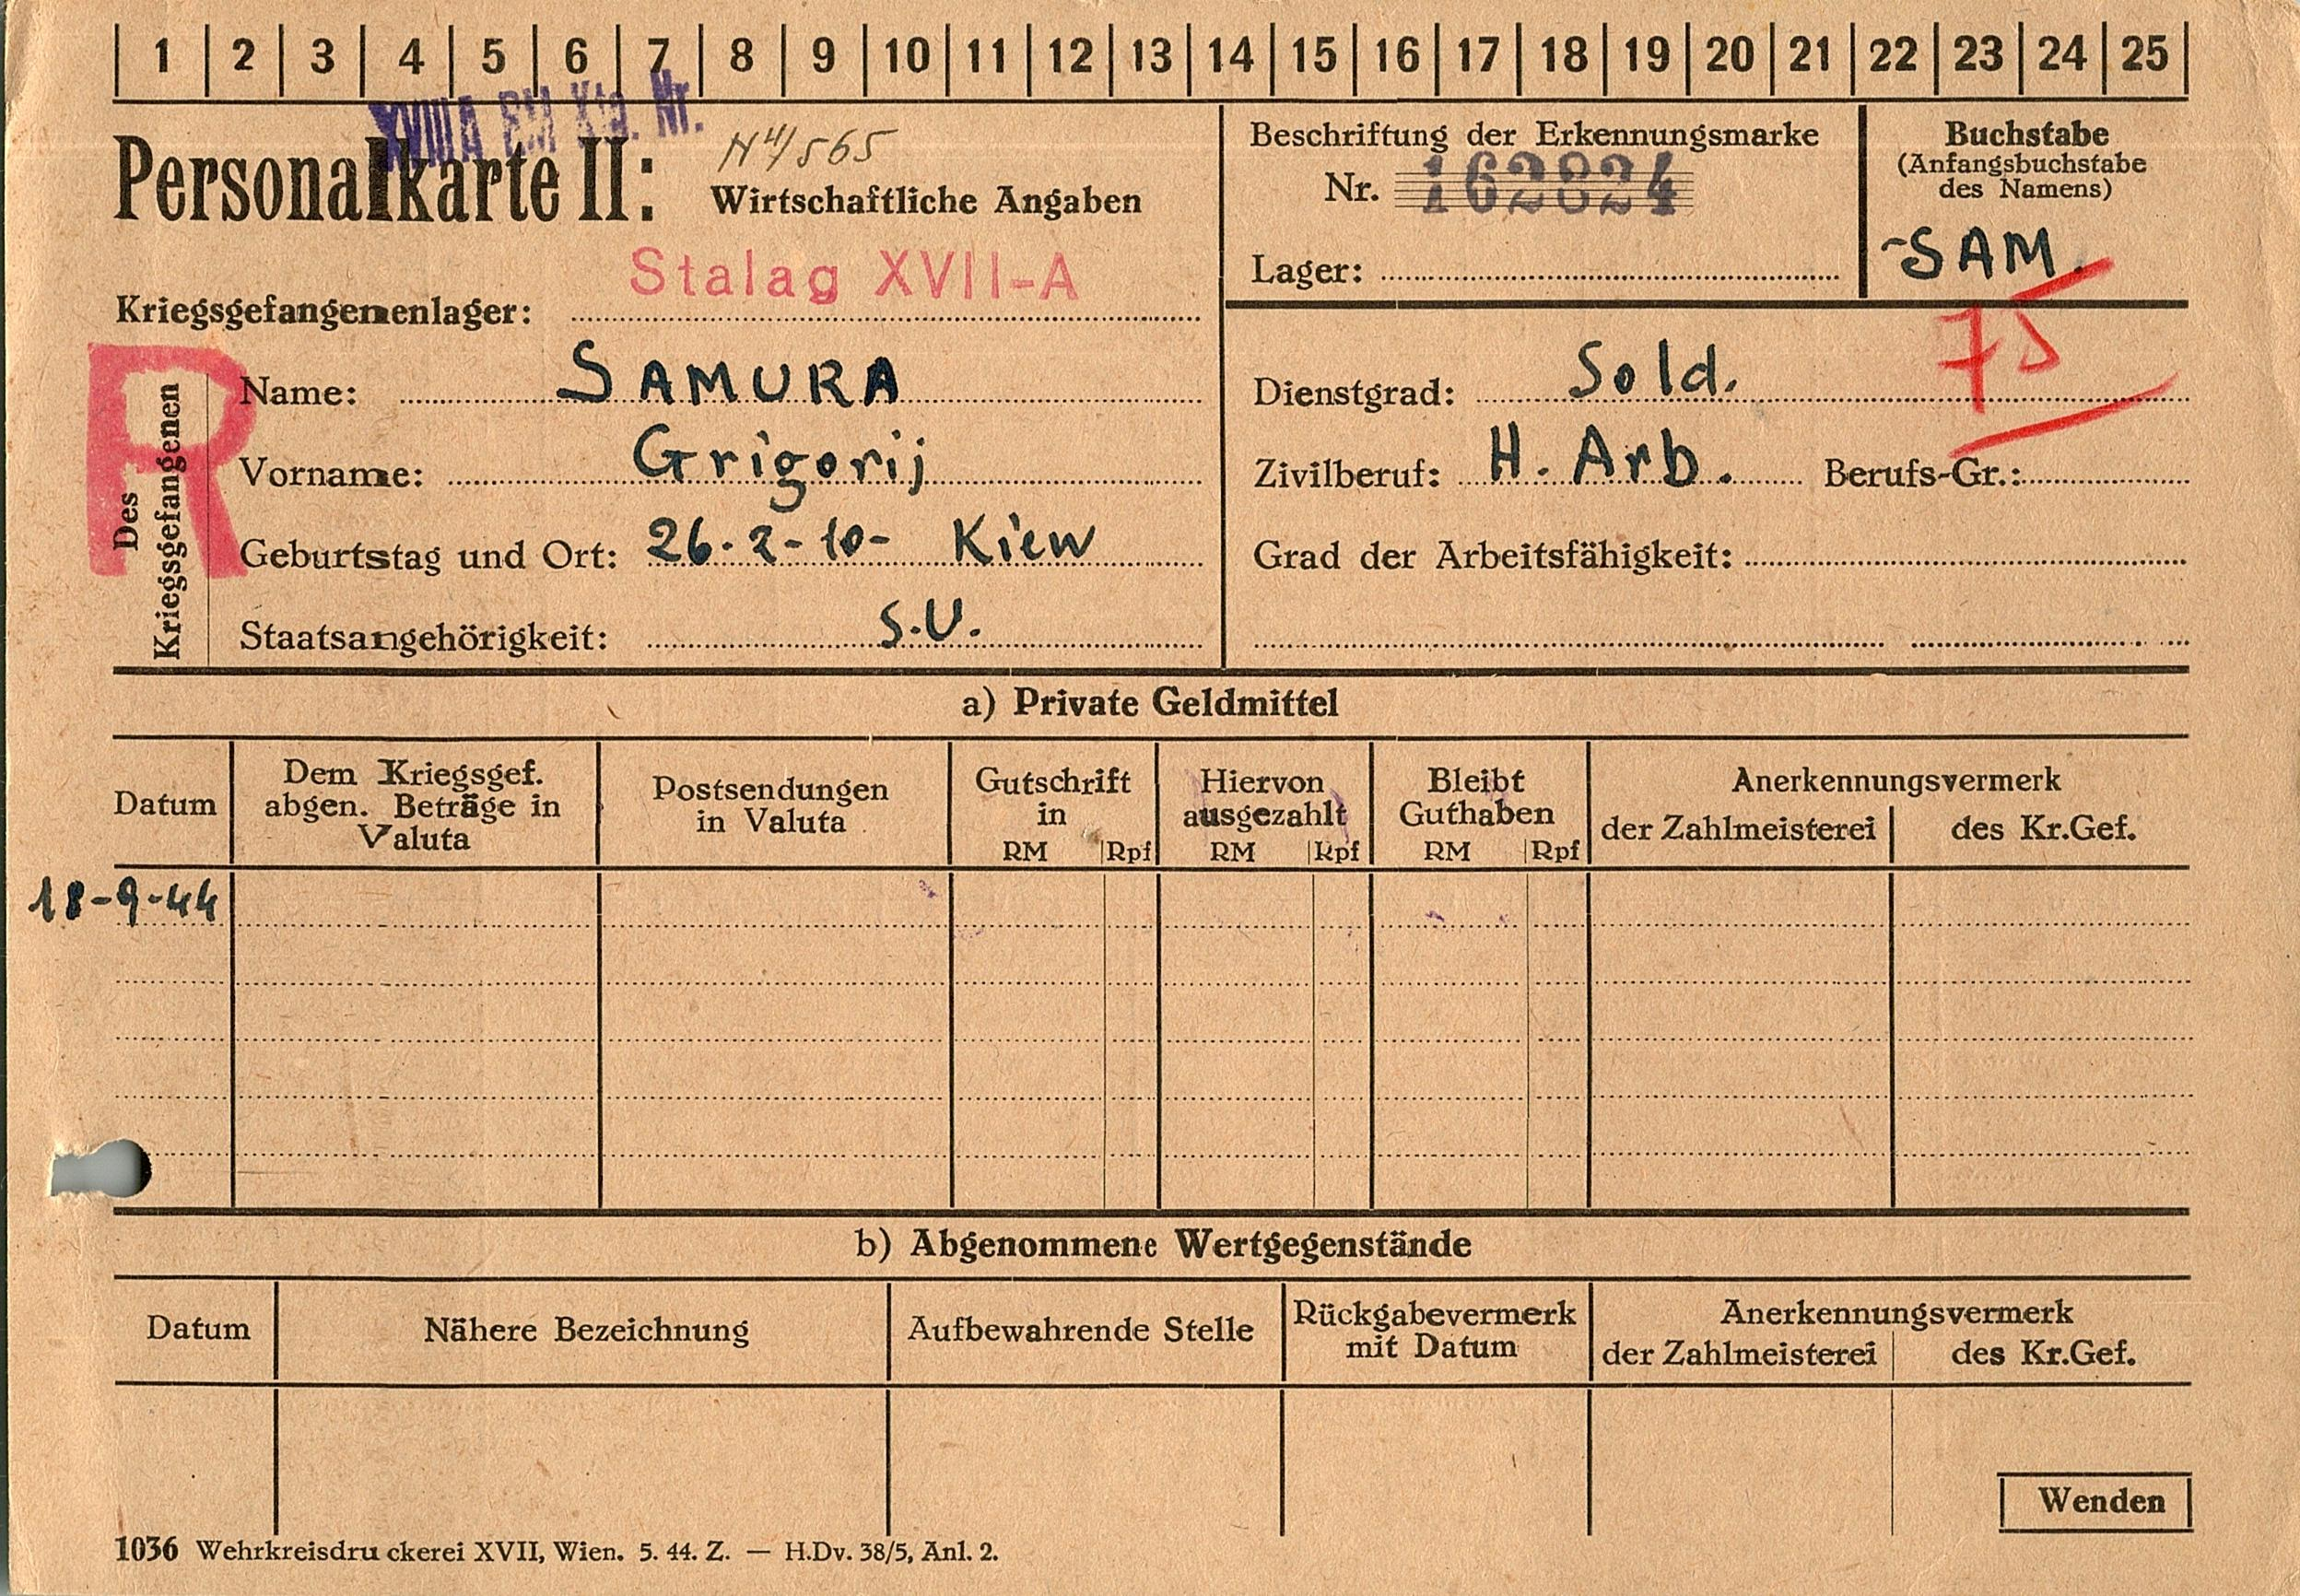 1 2 3 4 5 6 7 8 9 10 11 12 13 14 15 16 17 18 19 20 21 22 23 24 25
XVIII A BM Ktg. Nr.
N 4/565
Personalkarte II: Wirtschaftliche Angaben
Beschriftung der Erkennungsmarke
Nr. 162824
Lager:
Buchstabe
(Anfangsbuchstabe
des Namens)
SAM.
75
Stalag XVII-A
Kriegsgefangenenlager:
R
Des
Kriegsgefangenen
Name: SAMURA
Vorname: Grigorij
Geburtstag und Ort: 26-2-10- Kiew
Staatsangehörigkeit: S.U.
Dienstgrad: Sold.
Zivilberuf: H. Arb. Berufs-Gr.:
Grad der Arbeitsfähigkeit:
a) Private Geldmittel
Datum
Dem Kriegsgef.
abgen. Beträge in
Valuta
Postsendungen
in Valuta
Gutschrift
in
RM Rpf
Hiervon
ausgezahlt
RM Rpf
Bleibt
Guthaben
RM Rpf
Anerkennungsvermerk
der Zahlmeisterei des Kr.Gef.
18-9-44
b) Abgenommene Wertgegenstände
Datum
Nähere Bezeichnung
Aufbewahrende Stelle
Rückgabevermerk
mit Datum
Anerkennungsvermerk
der Zahlmeisterei des Kr.Gef.
Wenden
1036 Wehrkreisdruckerei XVII, Wien. 5. 44. Z. — H.Dv. 38/5, Anl. 2.